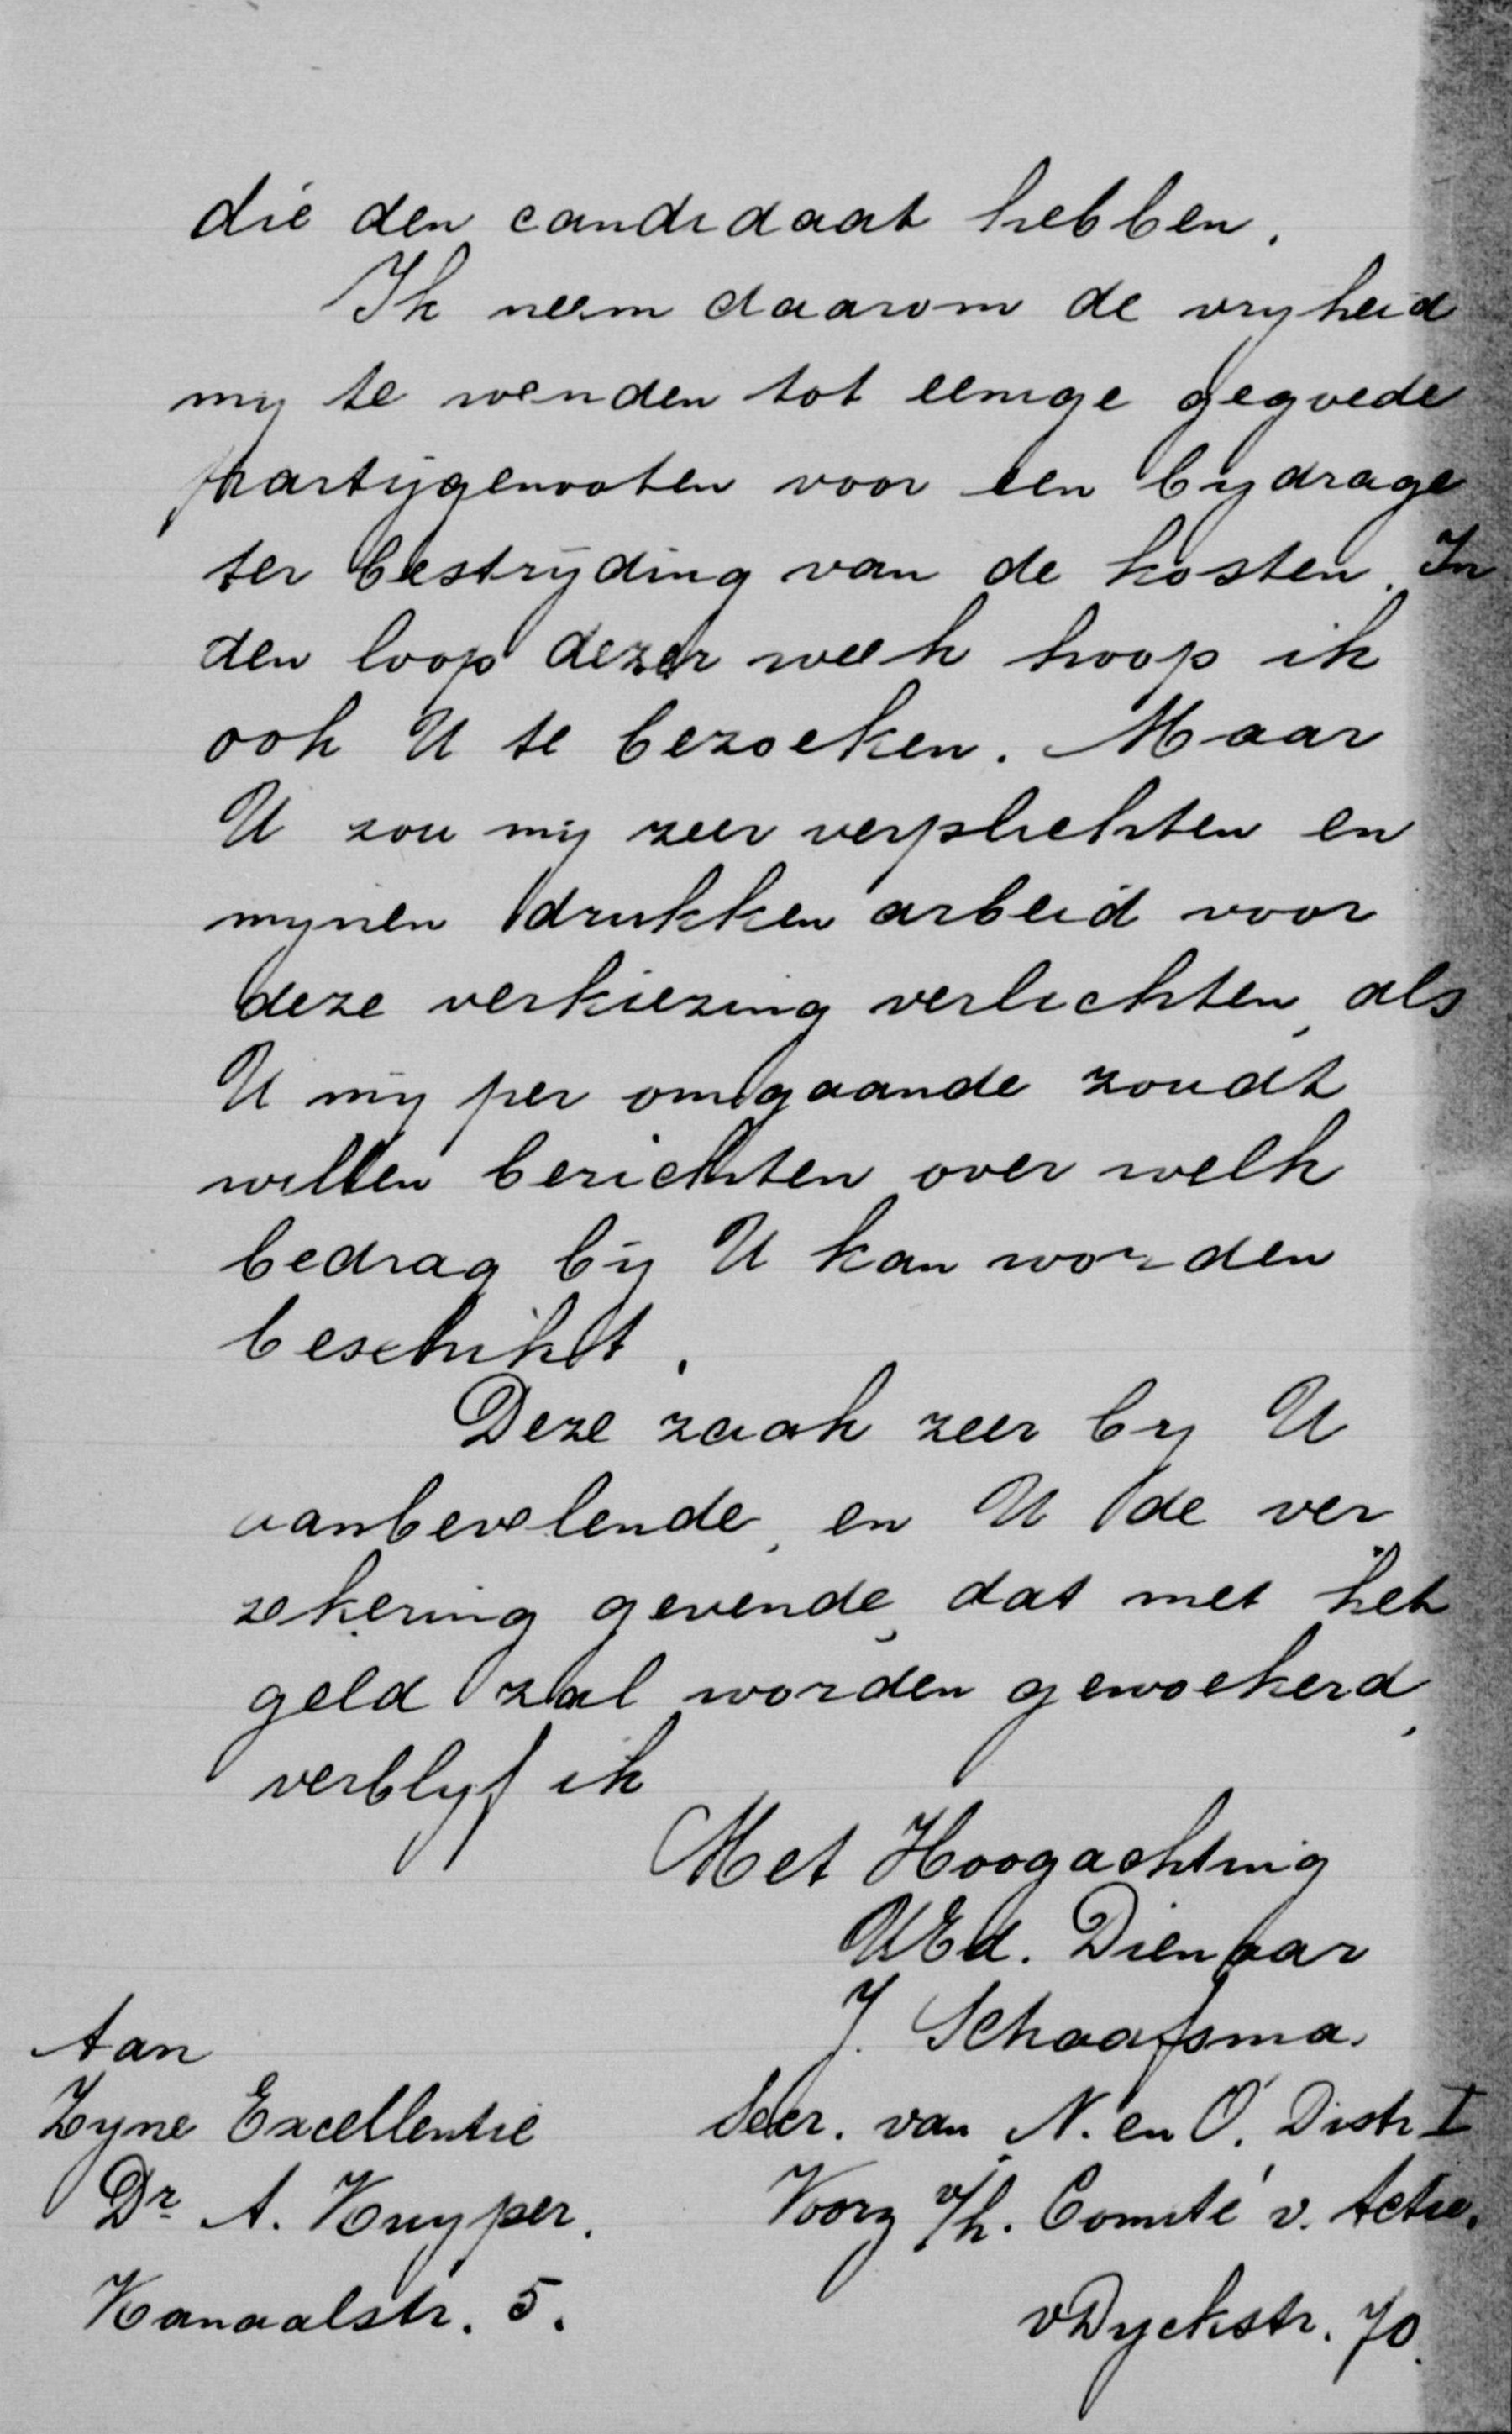 die den candidaat hebben.
Ik neem daarom de vryheid
my te wenden tot eenige gegoede
partijgenooten voor een bydrage
ter bestrijding van de kosten. In
den loop dezer week hoop ik
ook U te bezoeken. Maar
U zou mij zeer verplichten en
mynen drukken arbeid voor
deze verkiezing verlichten, als
U mij per omgaande zoudt
willen berichten over welk
bedrag bij U kan worden
beschikt.
Deze zaak zeer by U
aanbevelende, en U de ver
zekering gevende, dat met het
geld zal worden gewoekerd,
verblyf ik
Met Hoogachting
UEd. Dienaar
J. Schaafsma.
Secr. van N. en O. Distr I
Voorz v/h. Comité v. Actie.
vDyckstr. 70.
Aan
Zyne Excellentie
Dr A. Kuyper.
Kanaalstr. 5.